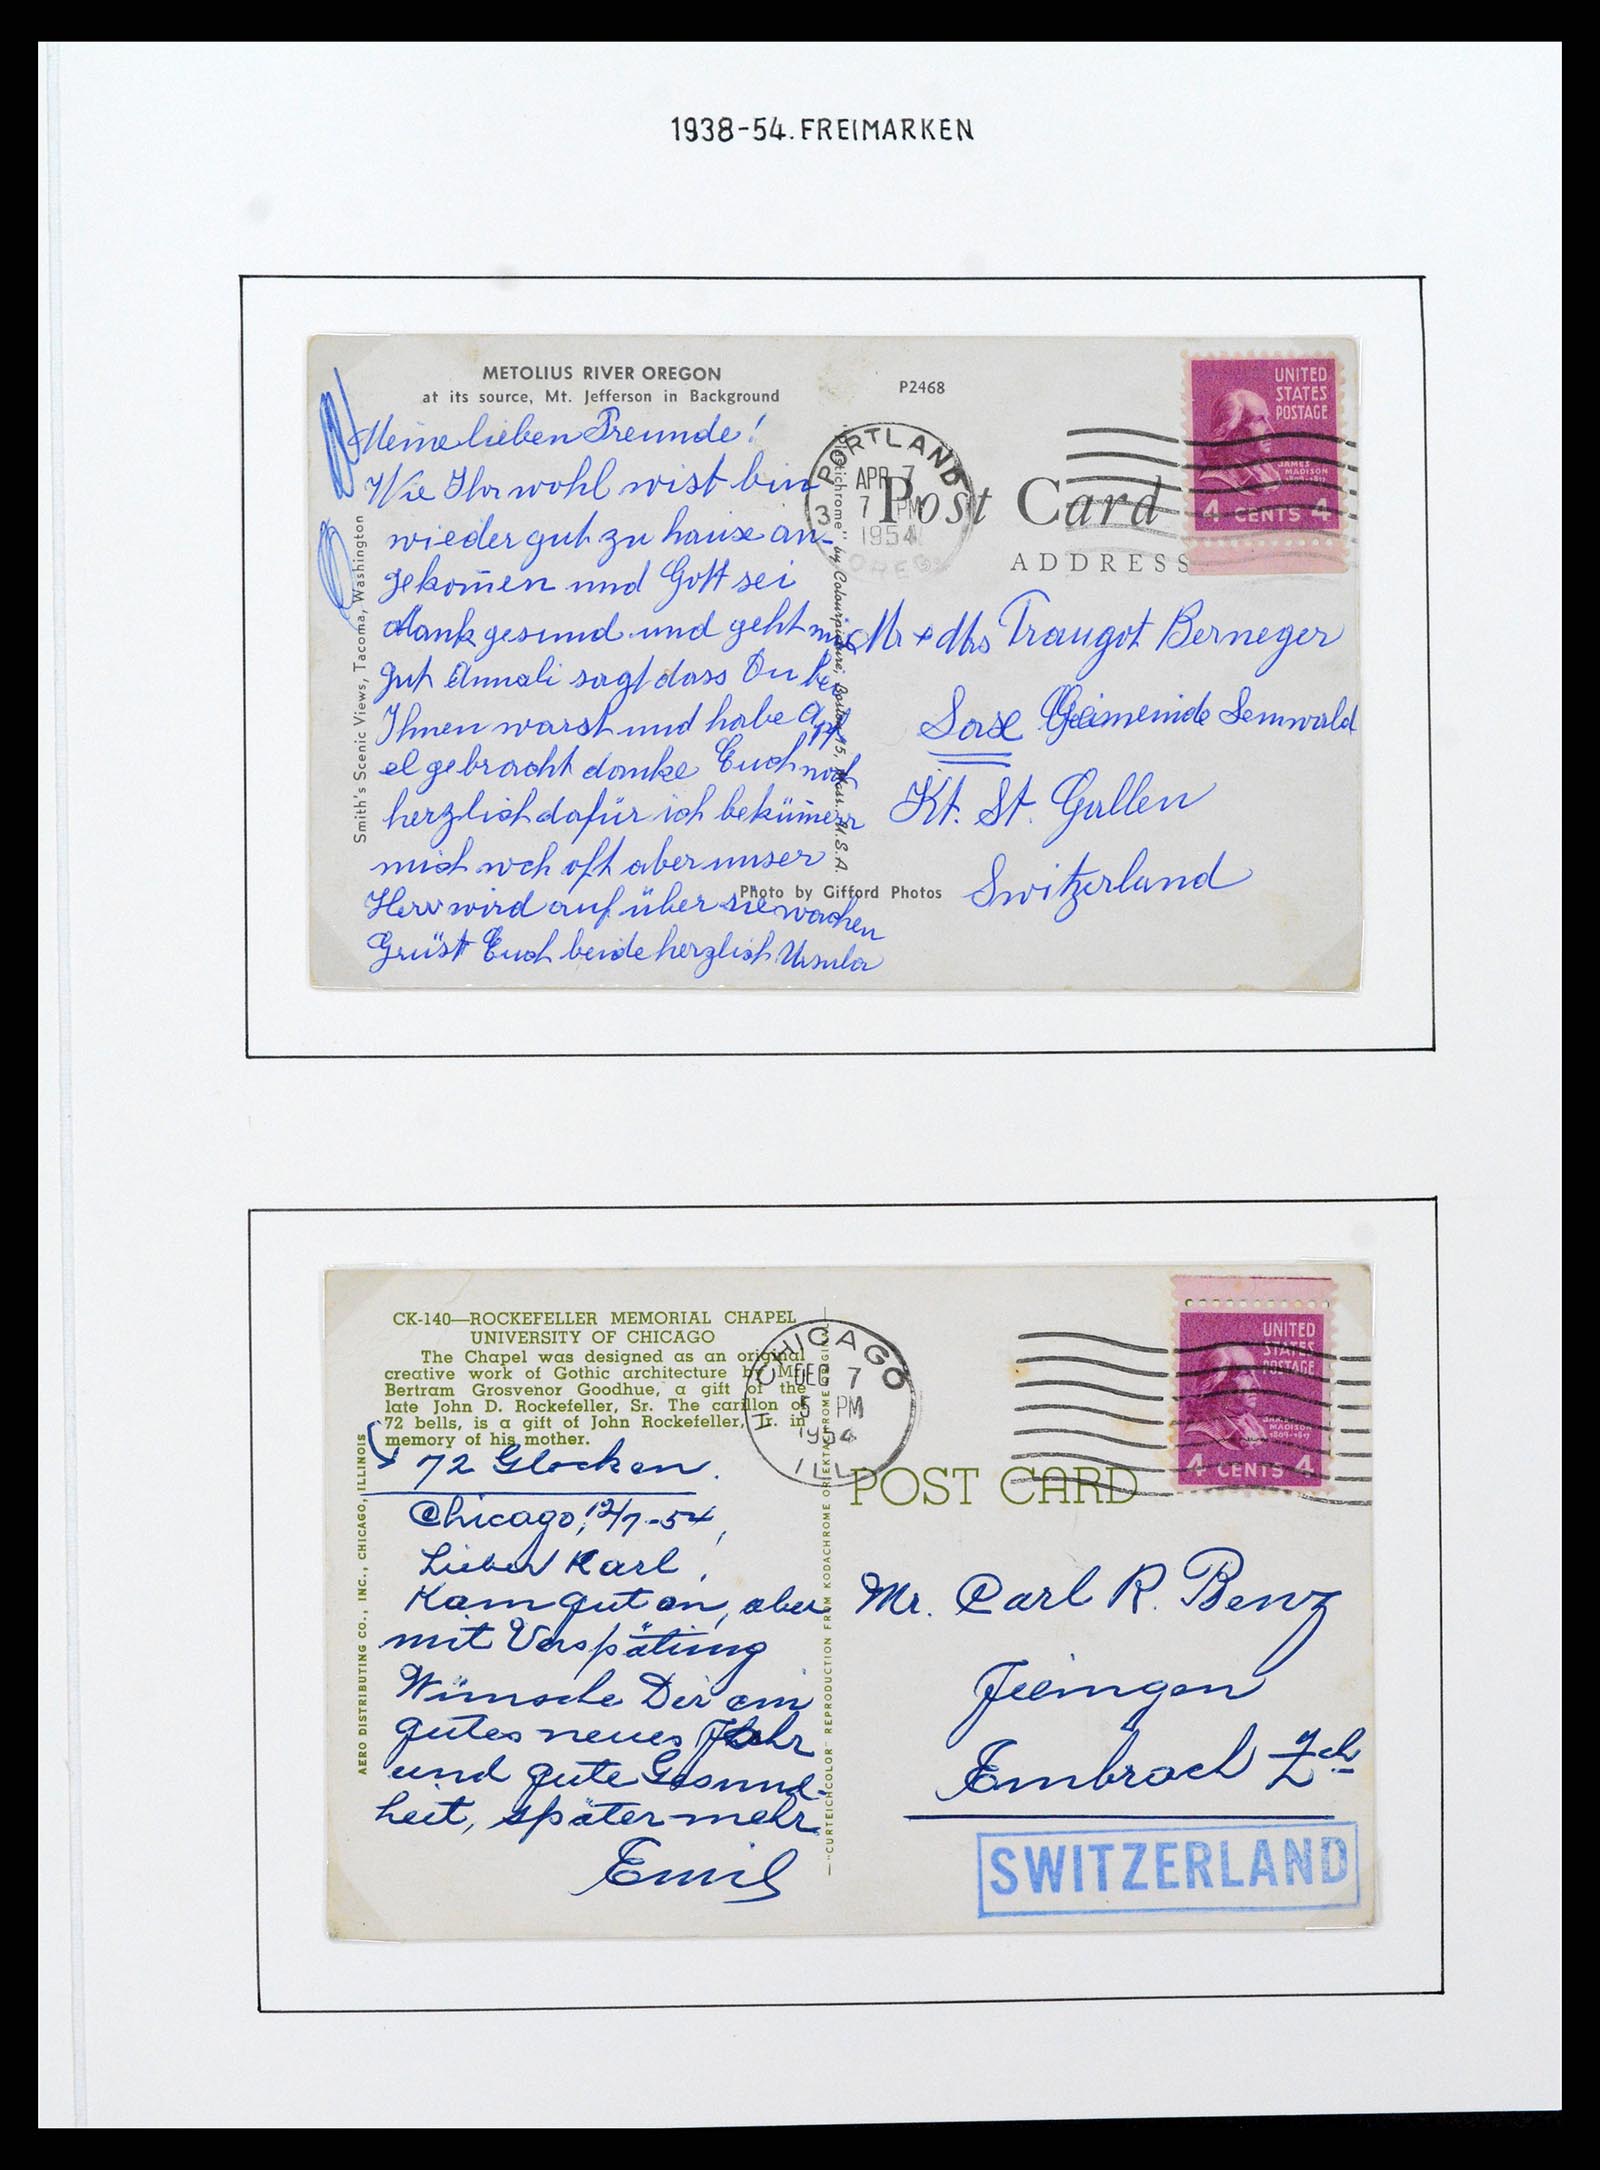 1938-54. FREIMARKEN
METOLIUS RIVER OREGON
at its source, Mt. Jefferson in Background
P2468
Meine lieben Freunde!
Wie Ihr wohl wist bin
wieder gut zu hause an-
gekom̄en und Gott sei
dank gesund und geht mir
gut Annali sagt dass Du bei
Ihnen warst und habe Apf
el gebracht danke Euch noch
herzlich dafür ich beküm̄err
mich noch oft aber unser
Herr wird auf über sie wachen
Grüst Euch beide herzlich Ursula
Smith's Scenic Views, Tacoma, Washington
"Plastichrome" by Colourpicture, Boston 15, Mass. U.S.A.
Photo by Gifford Photos
PORTLAND
3
APR 7
7 PM
1954
OREG
Post Card
ADDRESS
UNITED
STATES
POSTAGE
JAMES
MADISON
4 CENTS 4
Mr + Mrs Traugot Berneger
Sax Gemeinde Sennwald
Kt. St. Gallen
Switzerland
CK-140—ROCKEFELLER MEMORIAL CHAPEL
UNIVERSITY OF CHICAGO
The Chapel was designed as an original
creative work of Gothic architecture by Mr.
Bertram Grosvenor Goodhue, a gift of the
late John D. Rockefeller, Sr. The carillon of
72 bells, is a gift of John Rockefeller, Jr. in
memory of his mother.
72 Glocken.
Chicago, 12/7-54,
Lieber Karl,
Kam gut an, aber
mit Verspätung
Wünsche Dir ein
gutes neues Jahr
und gute Gesund-
heit, später mehr
Emil
AERO DISTRIBUTING CO., INC., CHICAGO, ILLINOIS
"CURTEICHCOLOR" REPRODUCTION FROM KODACHROME OR EKTACHROME ORIGINAL
CHICAGO
DEC 7
5 PM
1954
ILL
POST CARD
UNITED
STATES
POSTAGE
JAMES
MADISON
1809-1817
4 CENTS 4
Mr. Carl R. Benz
Embrach Zch
SWITZERLAND